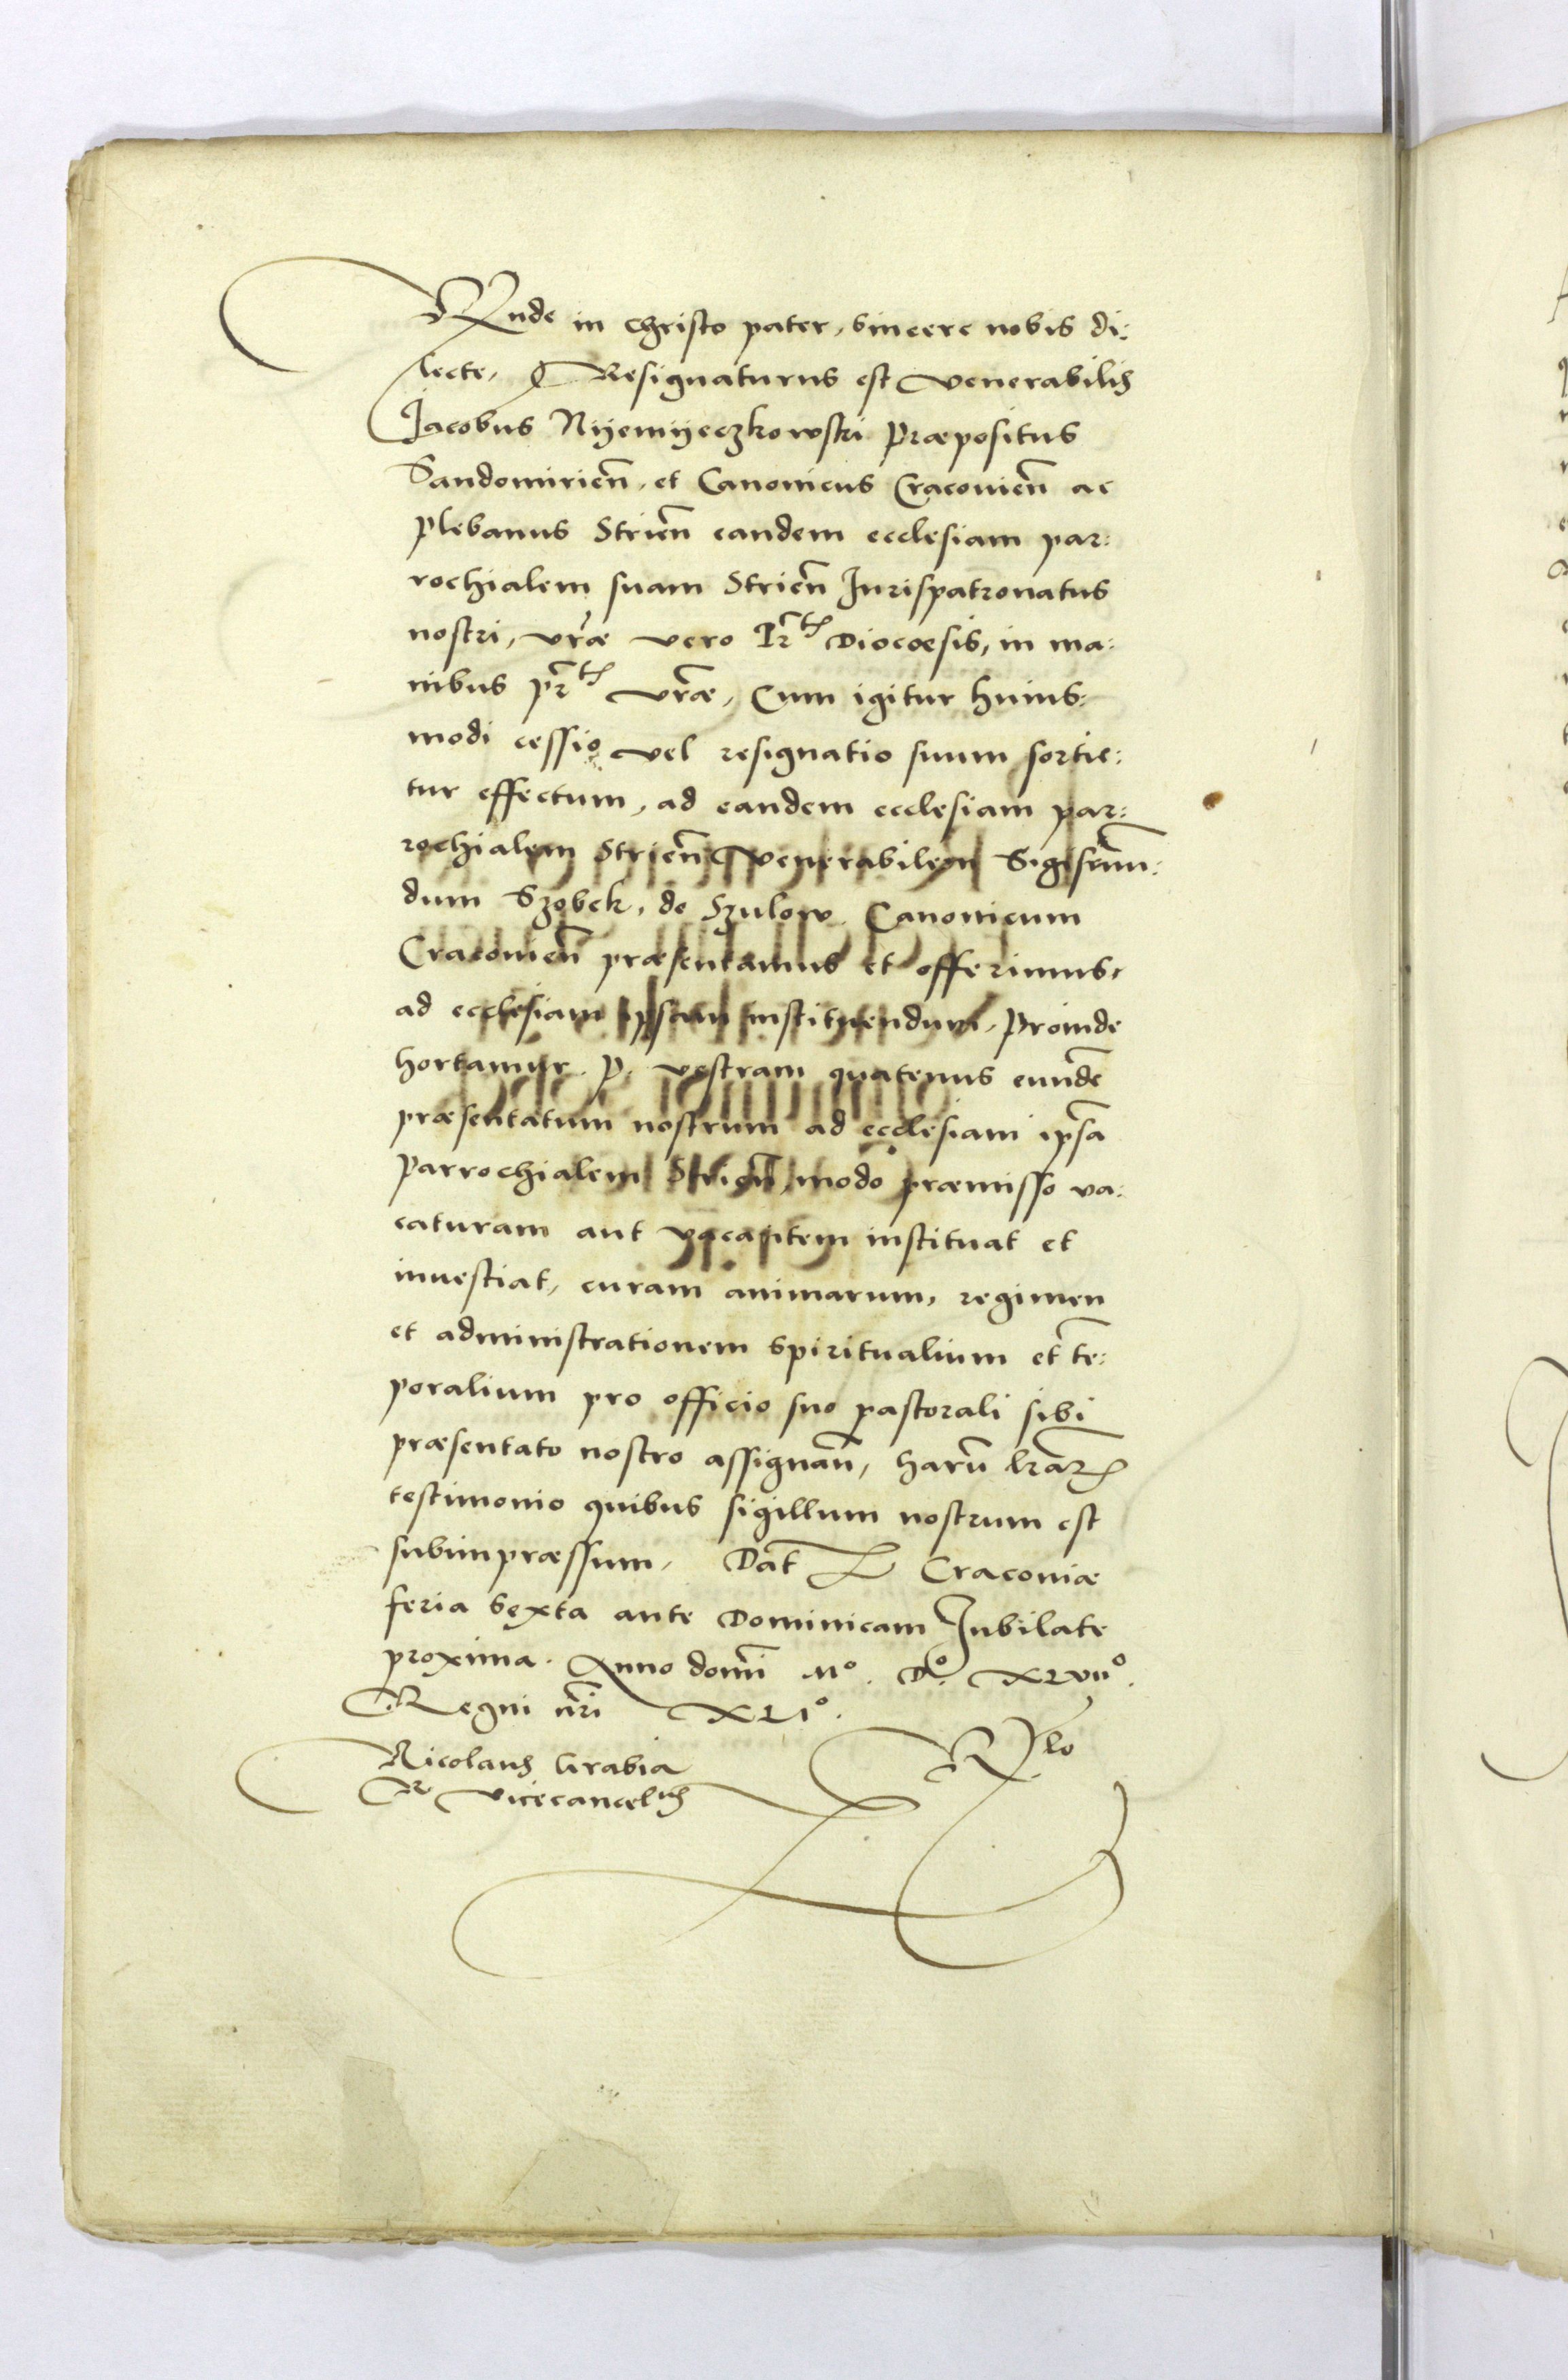 Rnde in Christo pater, sincere nobis di:
lecte, Resignaturus est venerabilis
Jacobus Nyemyeczkowski Præpositus
Sandomirieñ, et Canonicus Cracovieñ ac
plebanus Strieñ eandem ecclesiam par:
rochialem suam Strieñ Jurispatronatus
nostri, vræ vero Pr̃tis Diocœsis, in ma:
nibus pr̃tis vr̃æ, Cum igitur huius:
modi cessio vel resignatio suum sortie:
tur effectum, ad eandem ecclesiam par:
rochialem Strieñ venerabilem Sigismun:
dum Szobek, de Szulow Canonicum
Cracovieñ præsentamus et offerimus,
ad ecclesiam ipsam instituendum, proinde
hortamur. P. vestram quatenus eundē
præsentatum nostrum ad ecclesiam ipsā
parrochialem Strieñ, modo præmisso va:
caturam aut vacantem instituat et
investiat, curam animarum, regimen
et administrationem spiritualium et tē:
poralium pro officio suo pastorali sibi
præsentato nostro assignañ, harū lrãrꝝ
testimonio quibus sigillum nostrum est
subimpræssum, Dat̃ Cracoviæ
feria sexta ante Dominicam Jubilate
proxima. Anno domī Mº. Dº. XLVIIº.
Regni nr̃i XLIº.
Nicolaus Grabia
R vicecancelius